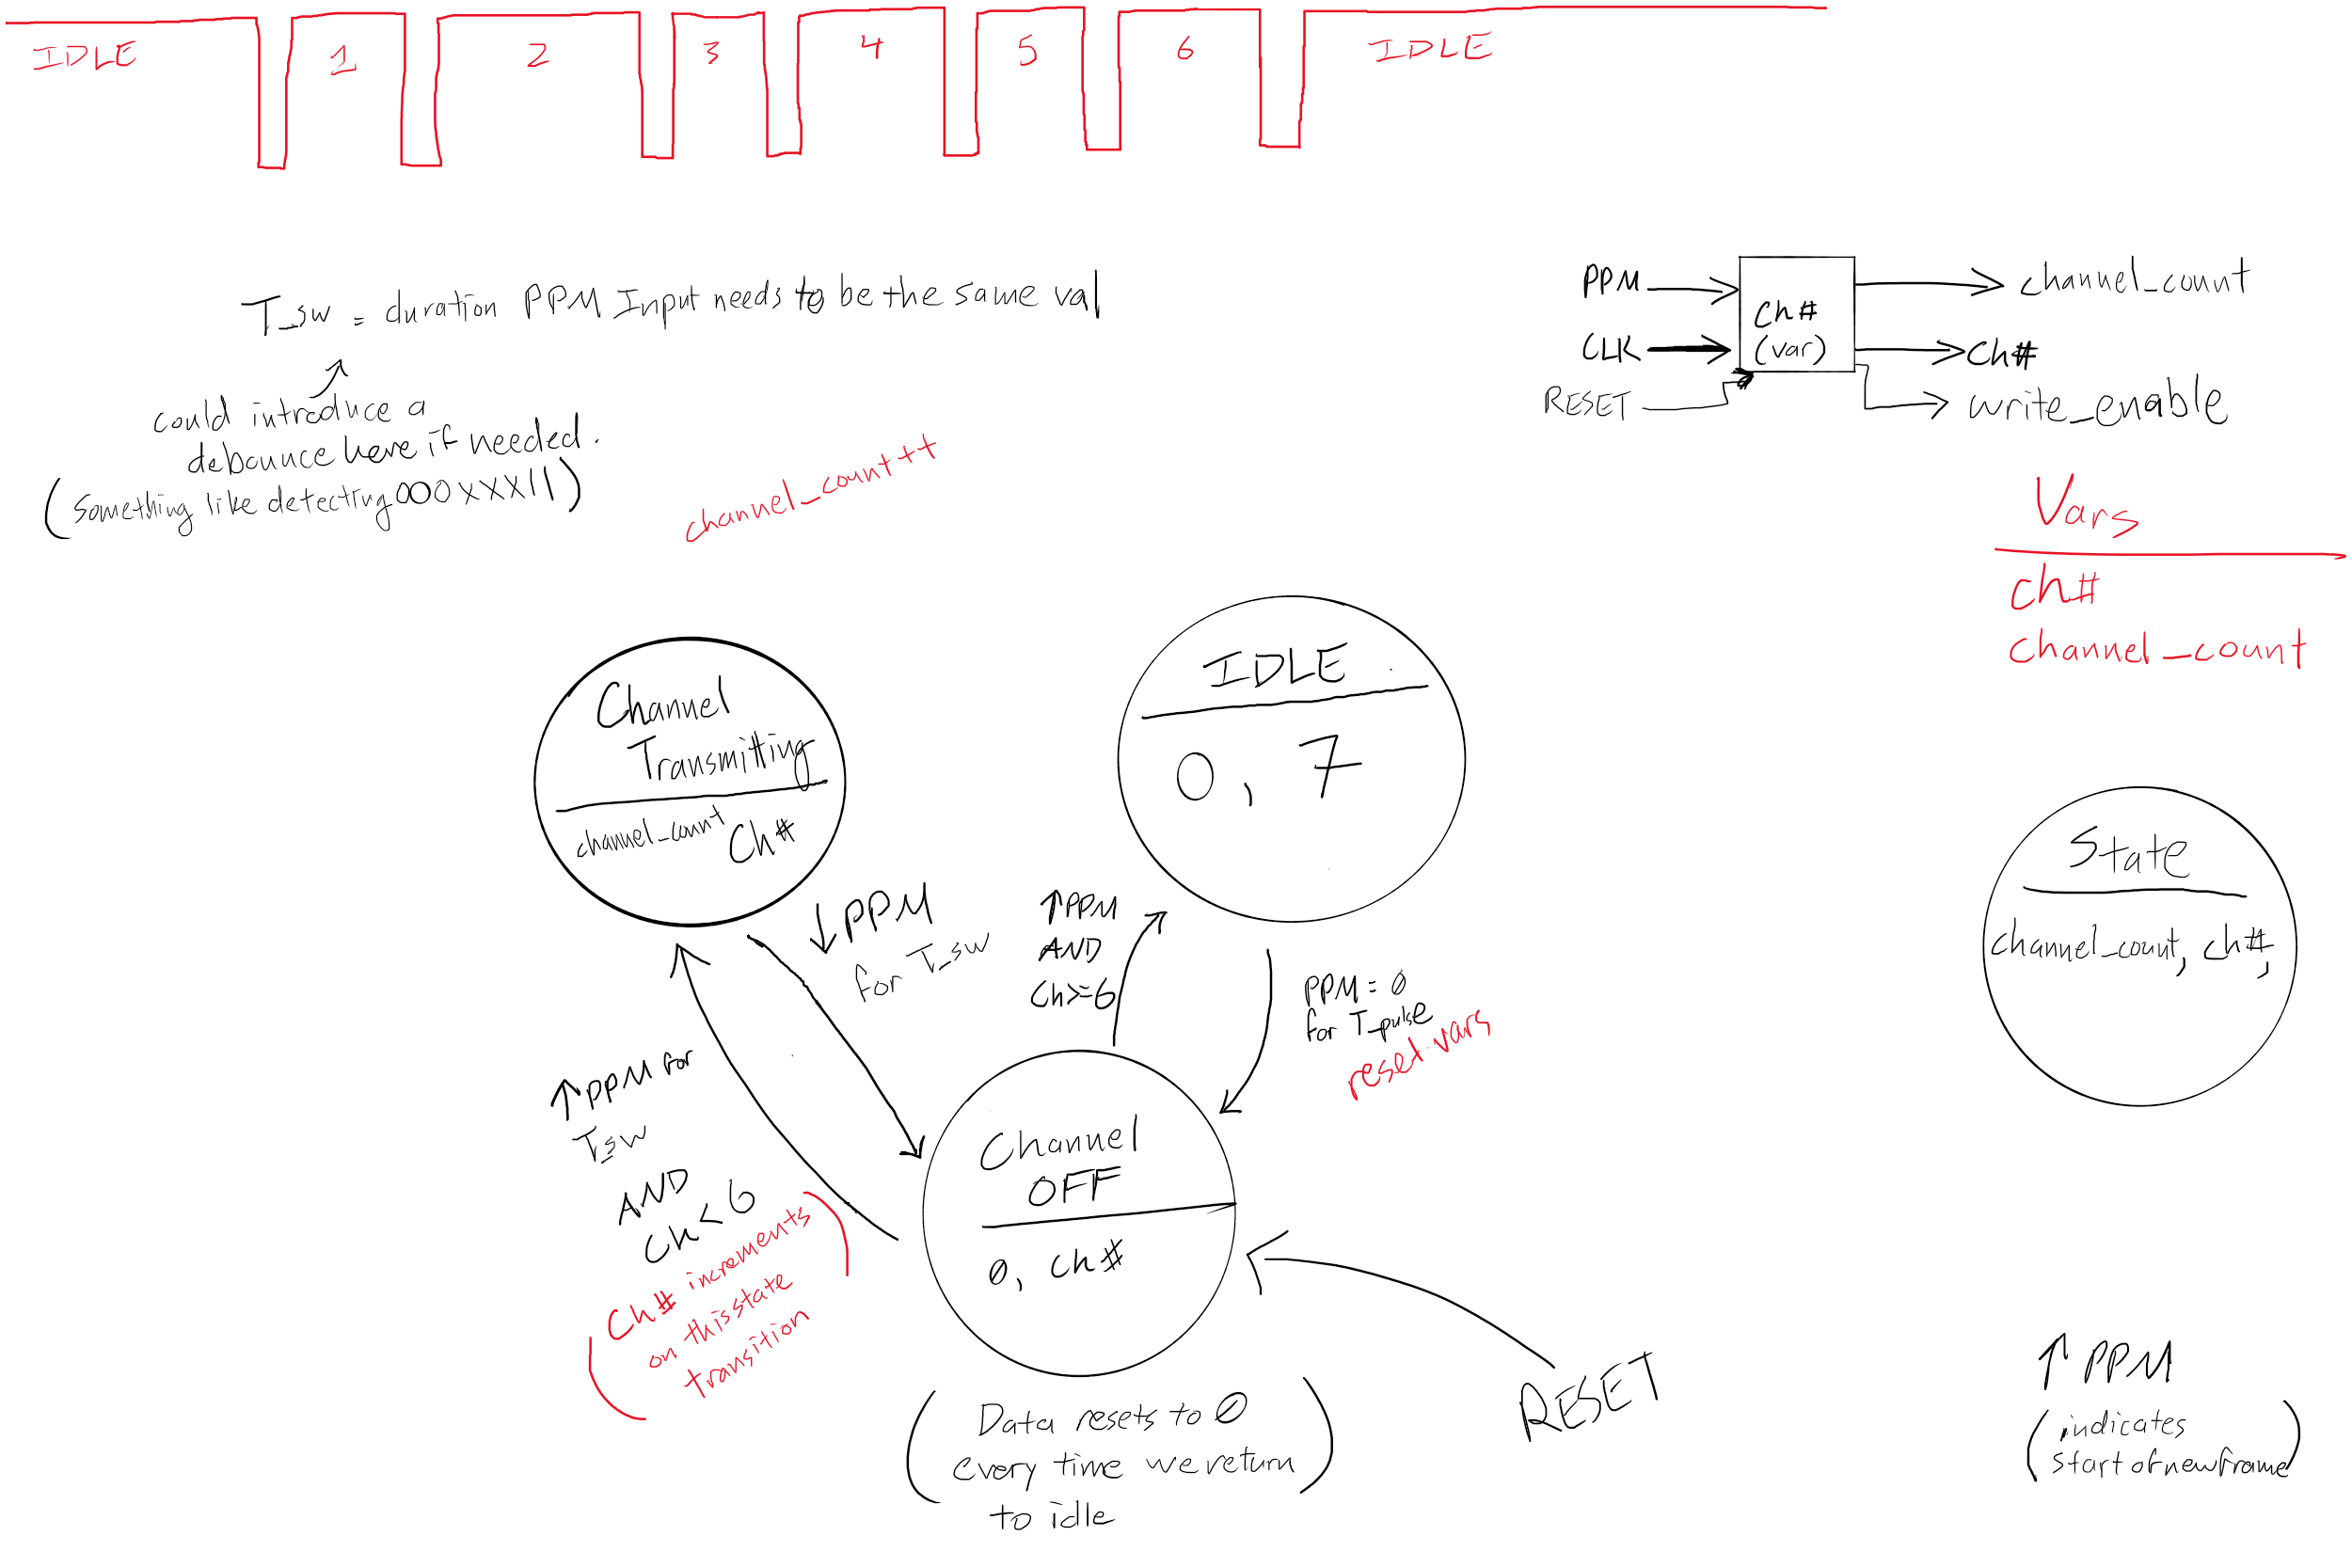 IDLE 1 2 3 4 5 6 IDLE
T_sw = duration PPM Input needs to be the same val
could introduce a
debounce here if needed.
(Something like detecting 000XXX111)
channel_count++
PPM
CLK
RESET
Ch#
(var)
channel_count
Ch#
write_enable
Vars
Ch#
channel_count
Channel
Transmitting
channel_count Ch#
IDLE
0, 7
State
channel_count, ch#,
↓PPM
for T_sw
↑PPM
AND
Ch>=6
PPM = 0
for T_pulse
reset vars
↑PPM for
T_sw
AND
Ch<6
(Ch# increments
on this state
transition)
Channel
OFF
0, Ch#
RESET
(Data resets to 0
every time we return
to idle)
↑PPM
(indicates
start of new frame)